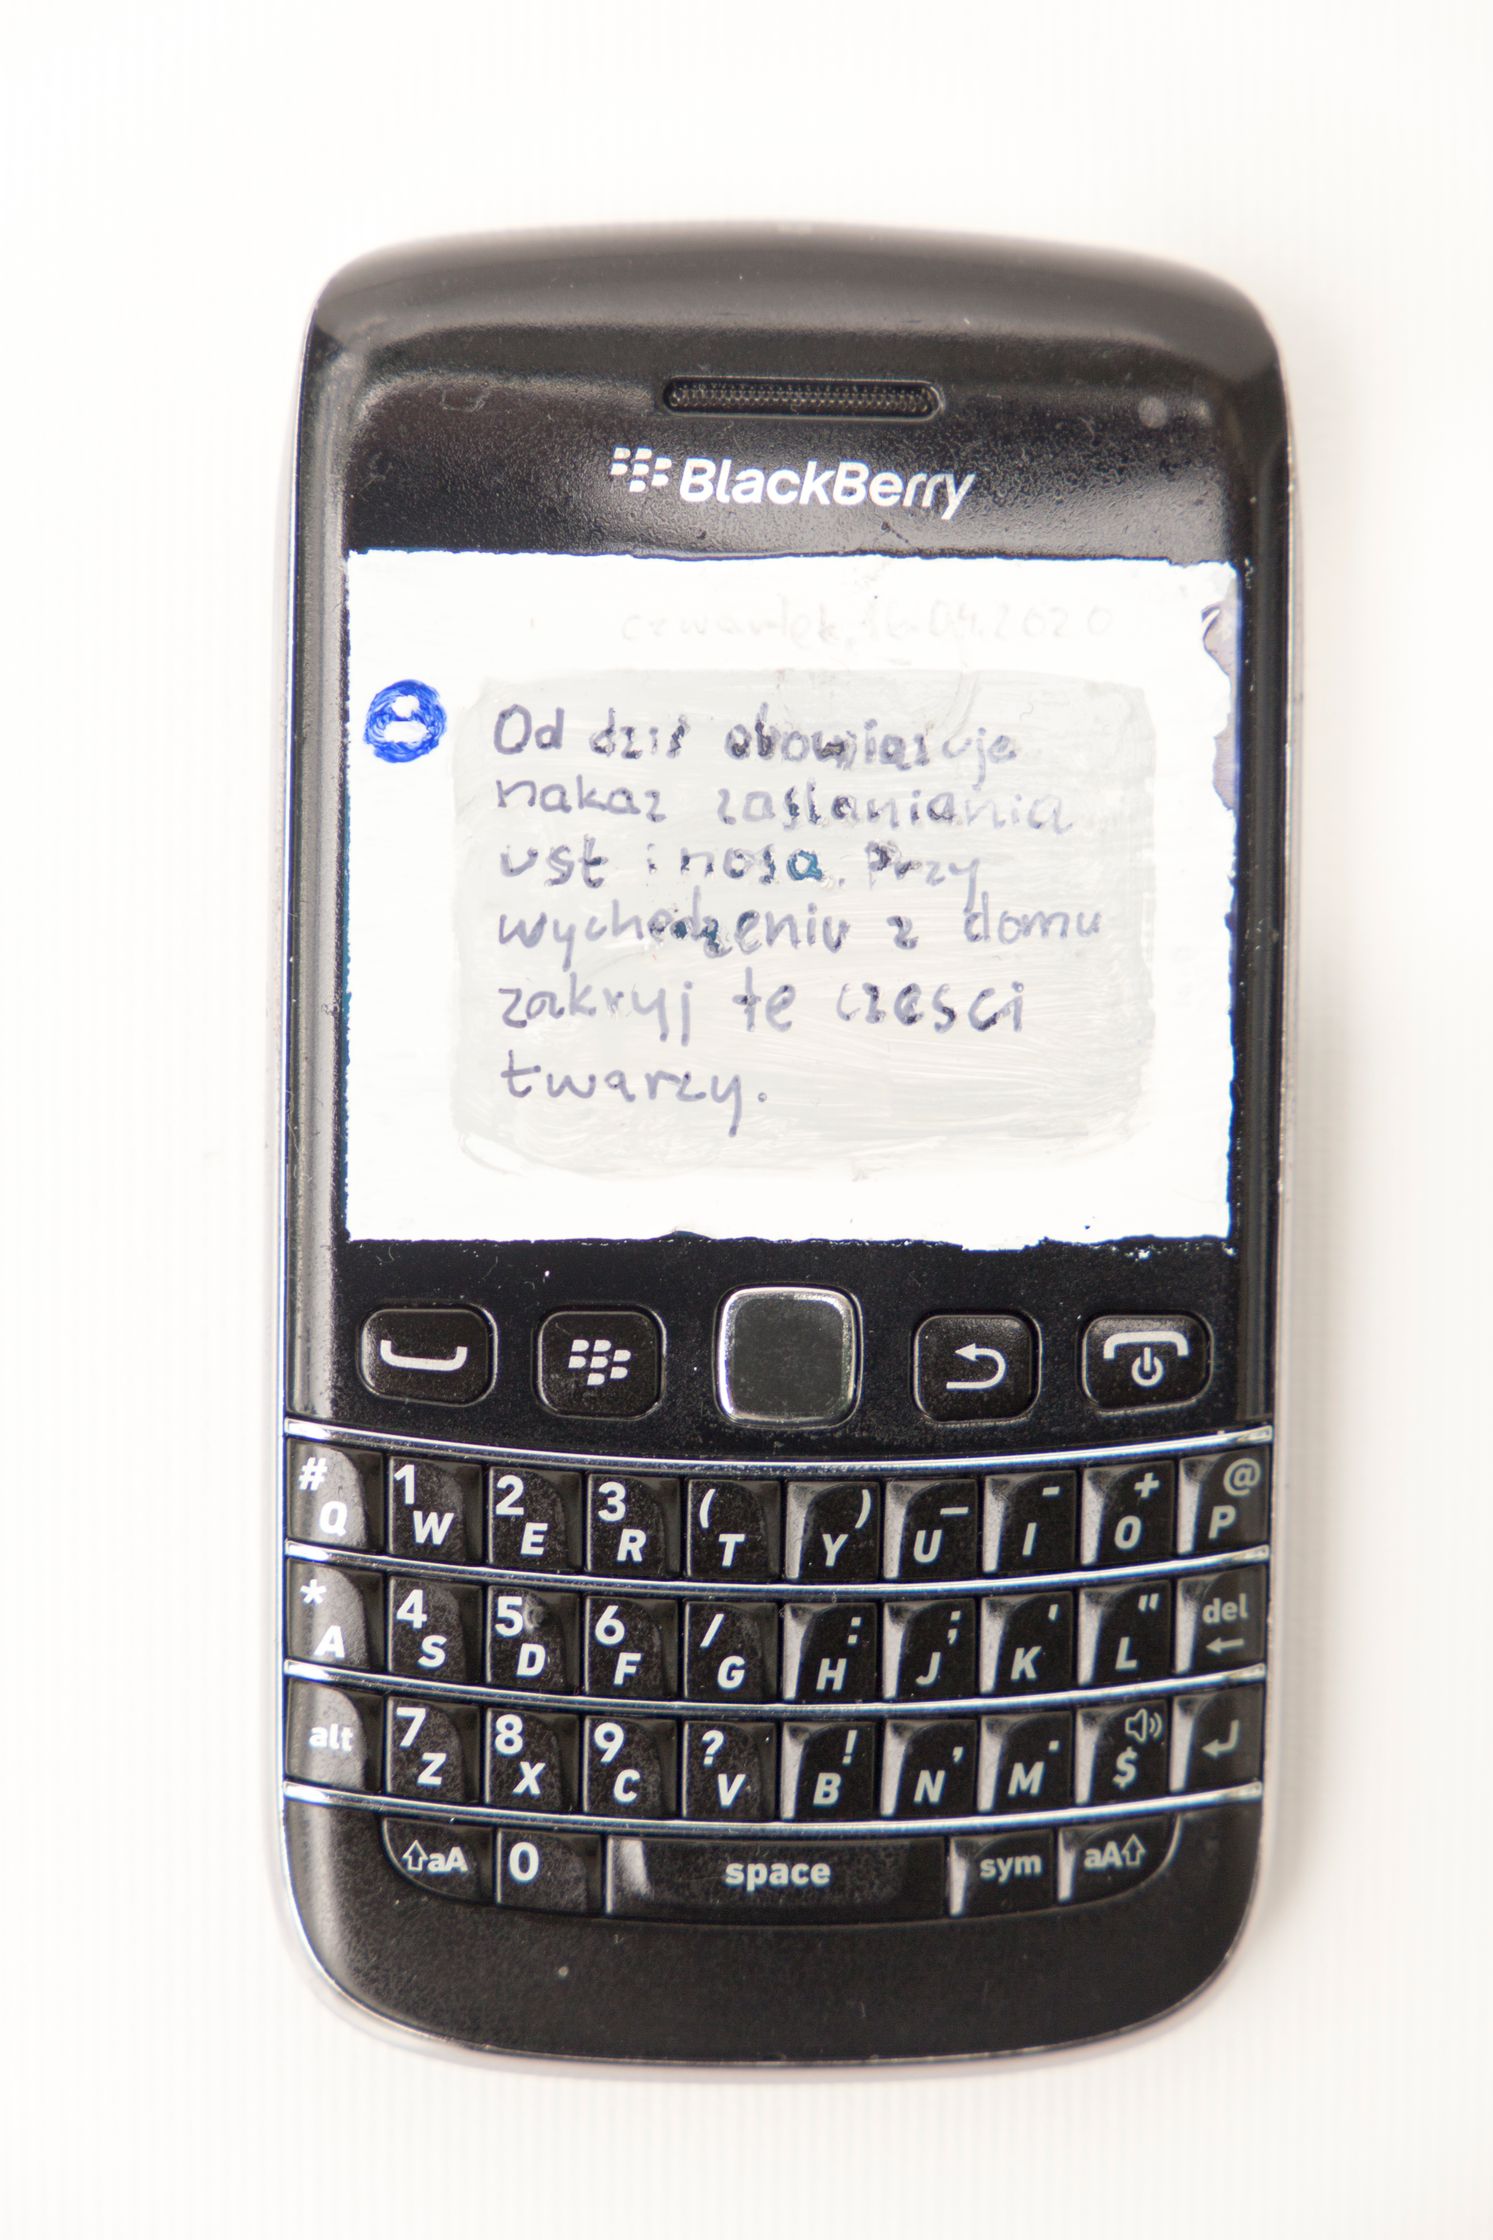 BlackBerry
czwartek, 16.04.2020
Od dziś obowiązuje
nakaz zaslaniania
ust i nosa. Przy
wychodzeniu z domu
zakryj te czesci
twarzy.
# Q 1 W 2 E 3 R ( T ) Y _ U - I + O @ P
* A 4 S 5 D 6 F / G : H ; J ' K " L del
alt 7 Z 8 X 9 C ? V ! B , N . M $
aA 0 space sym aA